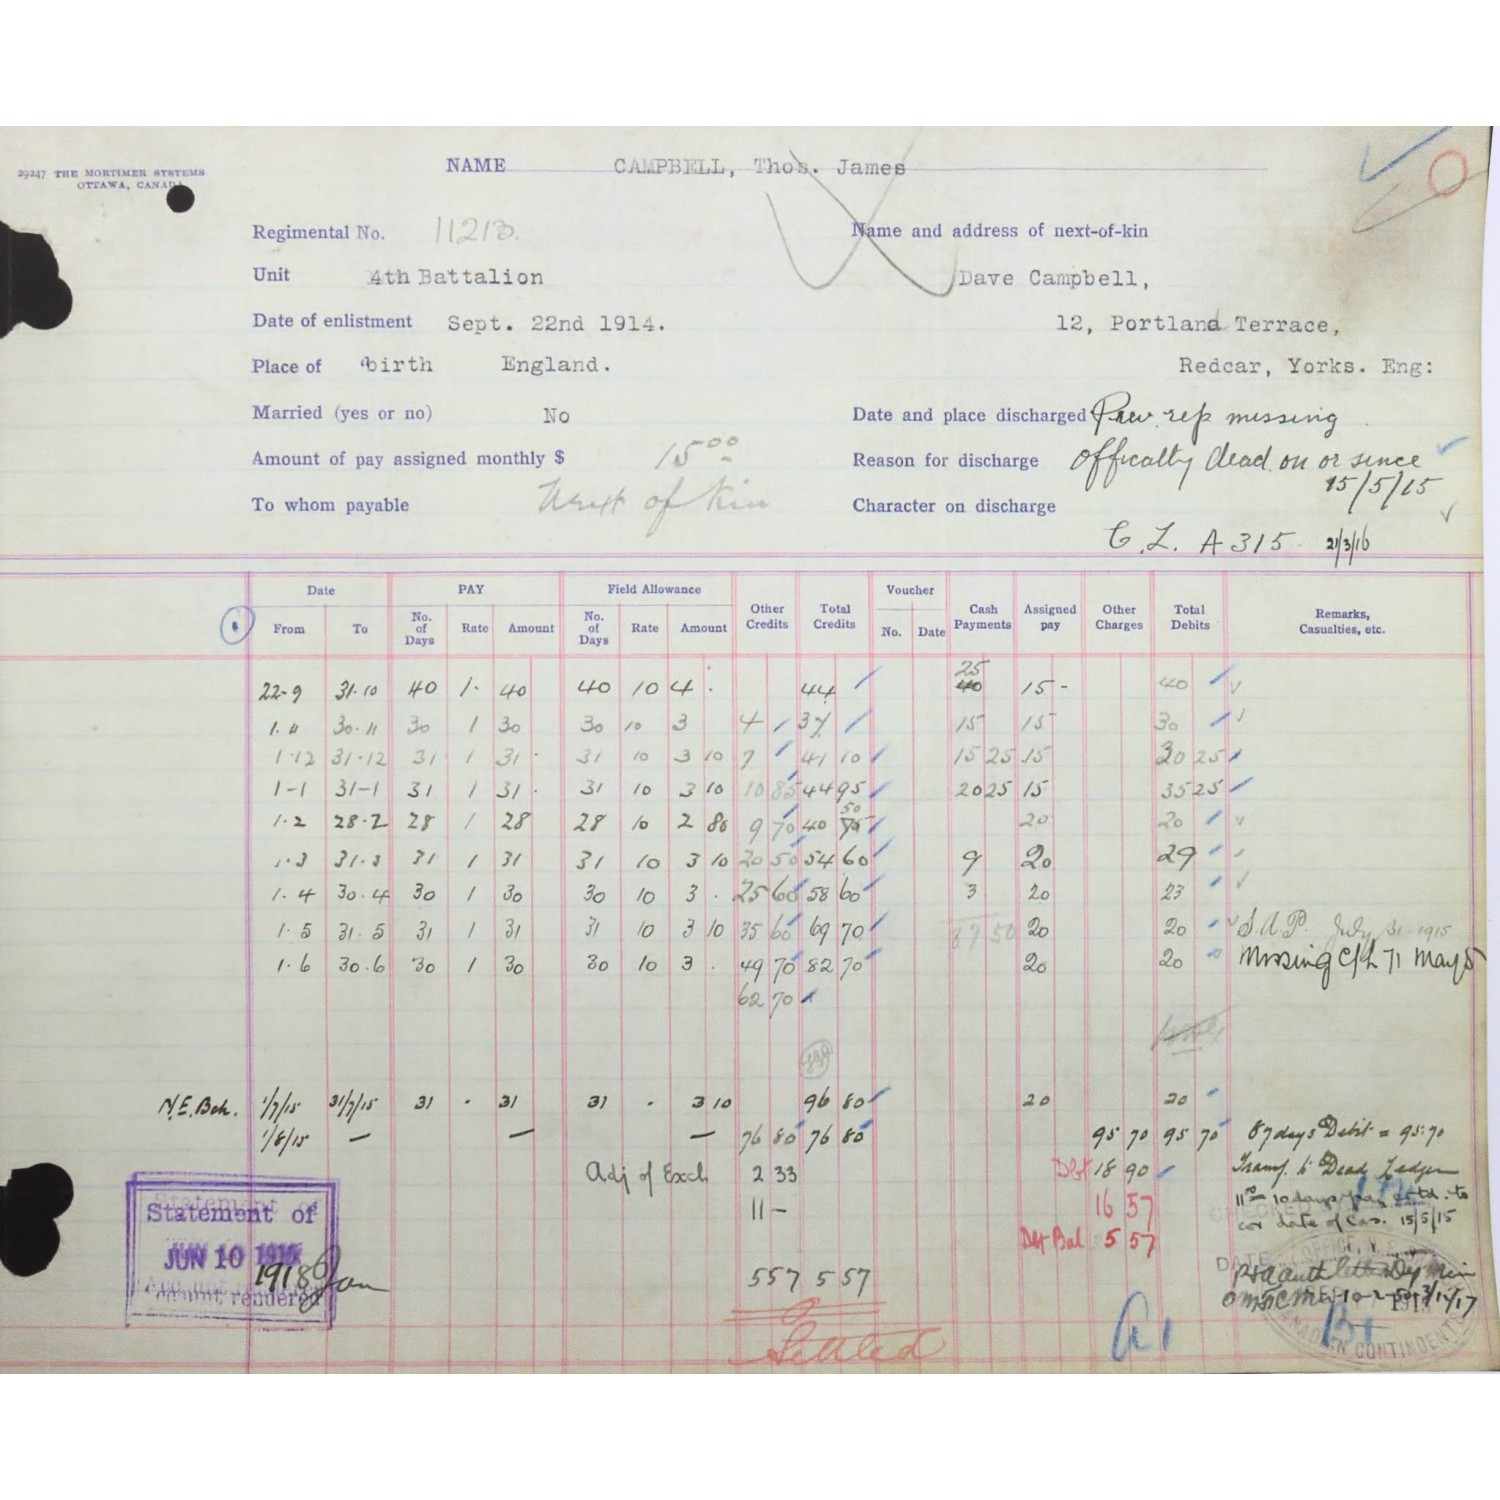 29247 THE MORTIMER SYSTEMS
OTTAWA, CANADA
NAME CAMPBELL, Thos. James
Regimental No.
Name and address of next-of-kin
Unit 4th Battalion
Dave Campbell,
Date of enlistment Sept. 22nd 1914.
12, Portland Terrace,
Place of birth England.
Redcar, Yorks. Eng:
Married (yes or no) No
Date and place discharged Prev. rep missing
Amount of pay assigned monthly $ 15.00
Reason for discharge officially dead on or since
15/5/15
To whom payable Next of Kin
Character on discharge
C.L. A 315 21/3/16
Date PAY Field Allowance Other Credits Total Credits Voucher Cash Payments Assigned pay Other Charges Total Debits Remarks, Casualties, etc.
From To No. of Days Rate Amount No. of Days Rate Amount No. Date
25
22-9 31.10 40 1. 40 40 10 4. 44 40 15- 40
1.11 30.11 30 1 30 30 10 3 4 37 15 15 30
1.12 31.12 31 1 31. 31 10 3 10 7 41 10 15 25 15 30 25
1-1 31-1 31 1 31. 31 10 3 10 10 85 44 95 20 25 15 35 25
50
1.2 28.2 28 1 28 28 10 2 80 9 70 40 20 20
1.3 31.3 31 1 31 31 10 3 10 20 50 54 60 9 20 29
1.4 30.4 30 1 30 30 10 3. 25 60 58 60 3 20 23
1.5 31.5 31 1 31 31 10 3 10 35 60 69 70 87 50 20 20 S.A.P. July 31-1915
1.6 30.6 30 1 30 30 10 3. 49 70 82 70 20 20 Missing C/L 71 May 5
62 70
N.E. Bch. 1/7/15 31/7/15 31 - 31 31 - 3 10 96 80 20 20
1/8/15 — — — 76 80 76 80 95 70 95 70 87 days Debit = 95.70
Adj of Exch 2 33 Dbt 18 90 Transf. to Dead Ledger
11 - 16 57 11.00 10 days pay to
cor date of Cas. 15/5/15
Dbt Bal 5 57
557 5 57
Settled
Statement of
JUN 10
1918
rendered
A1
B1
DATE
OFFICE,
CONTINGENT